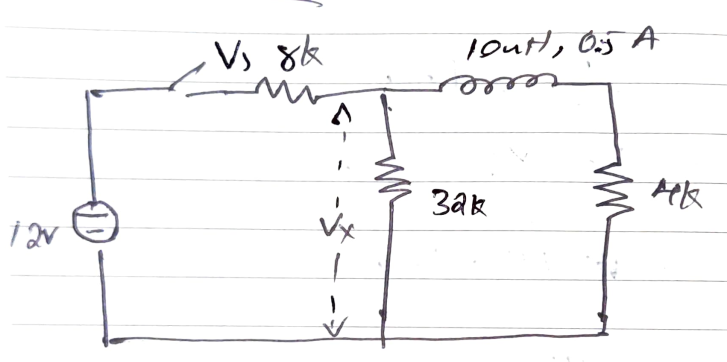 Vs 8k
10uH, 0.5 A
12v
Vx
32k
4k